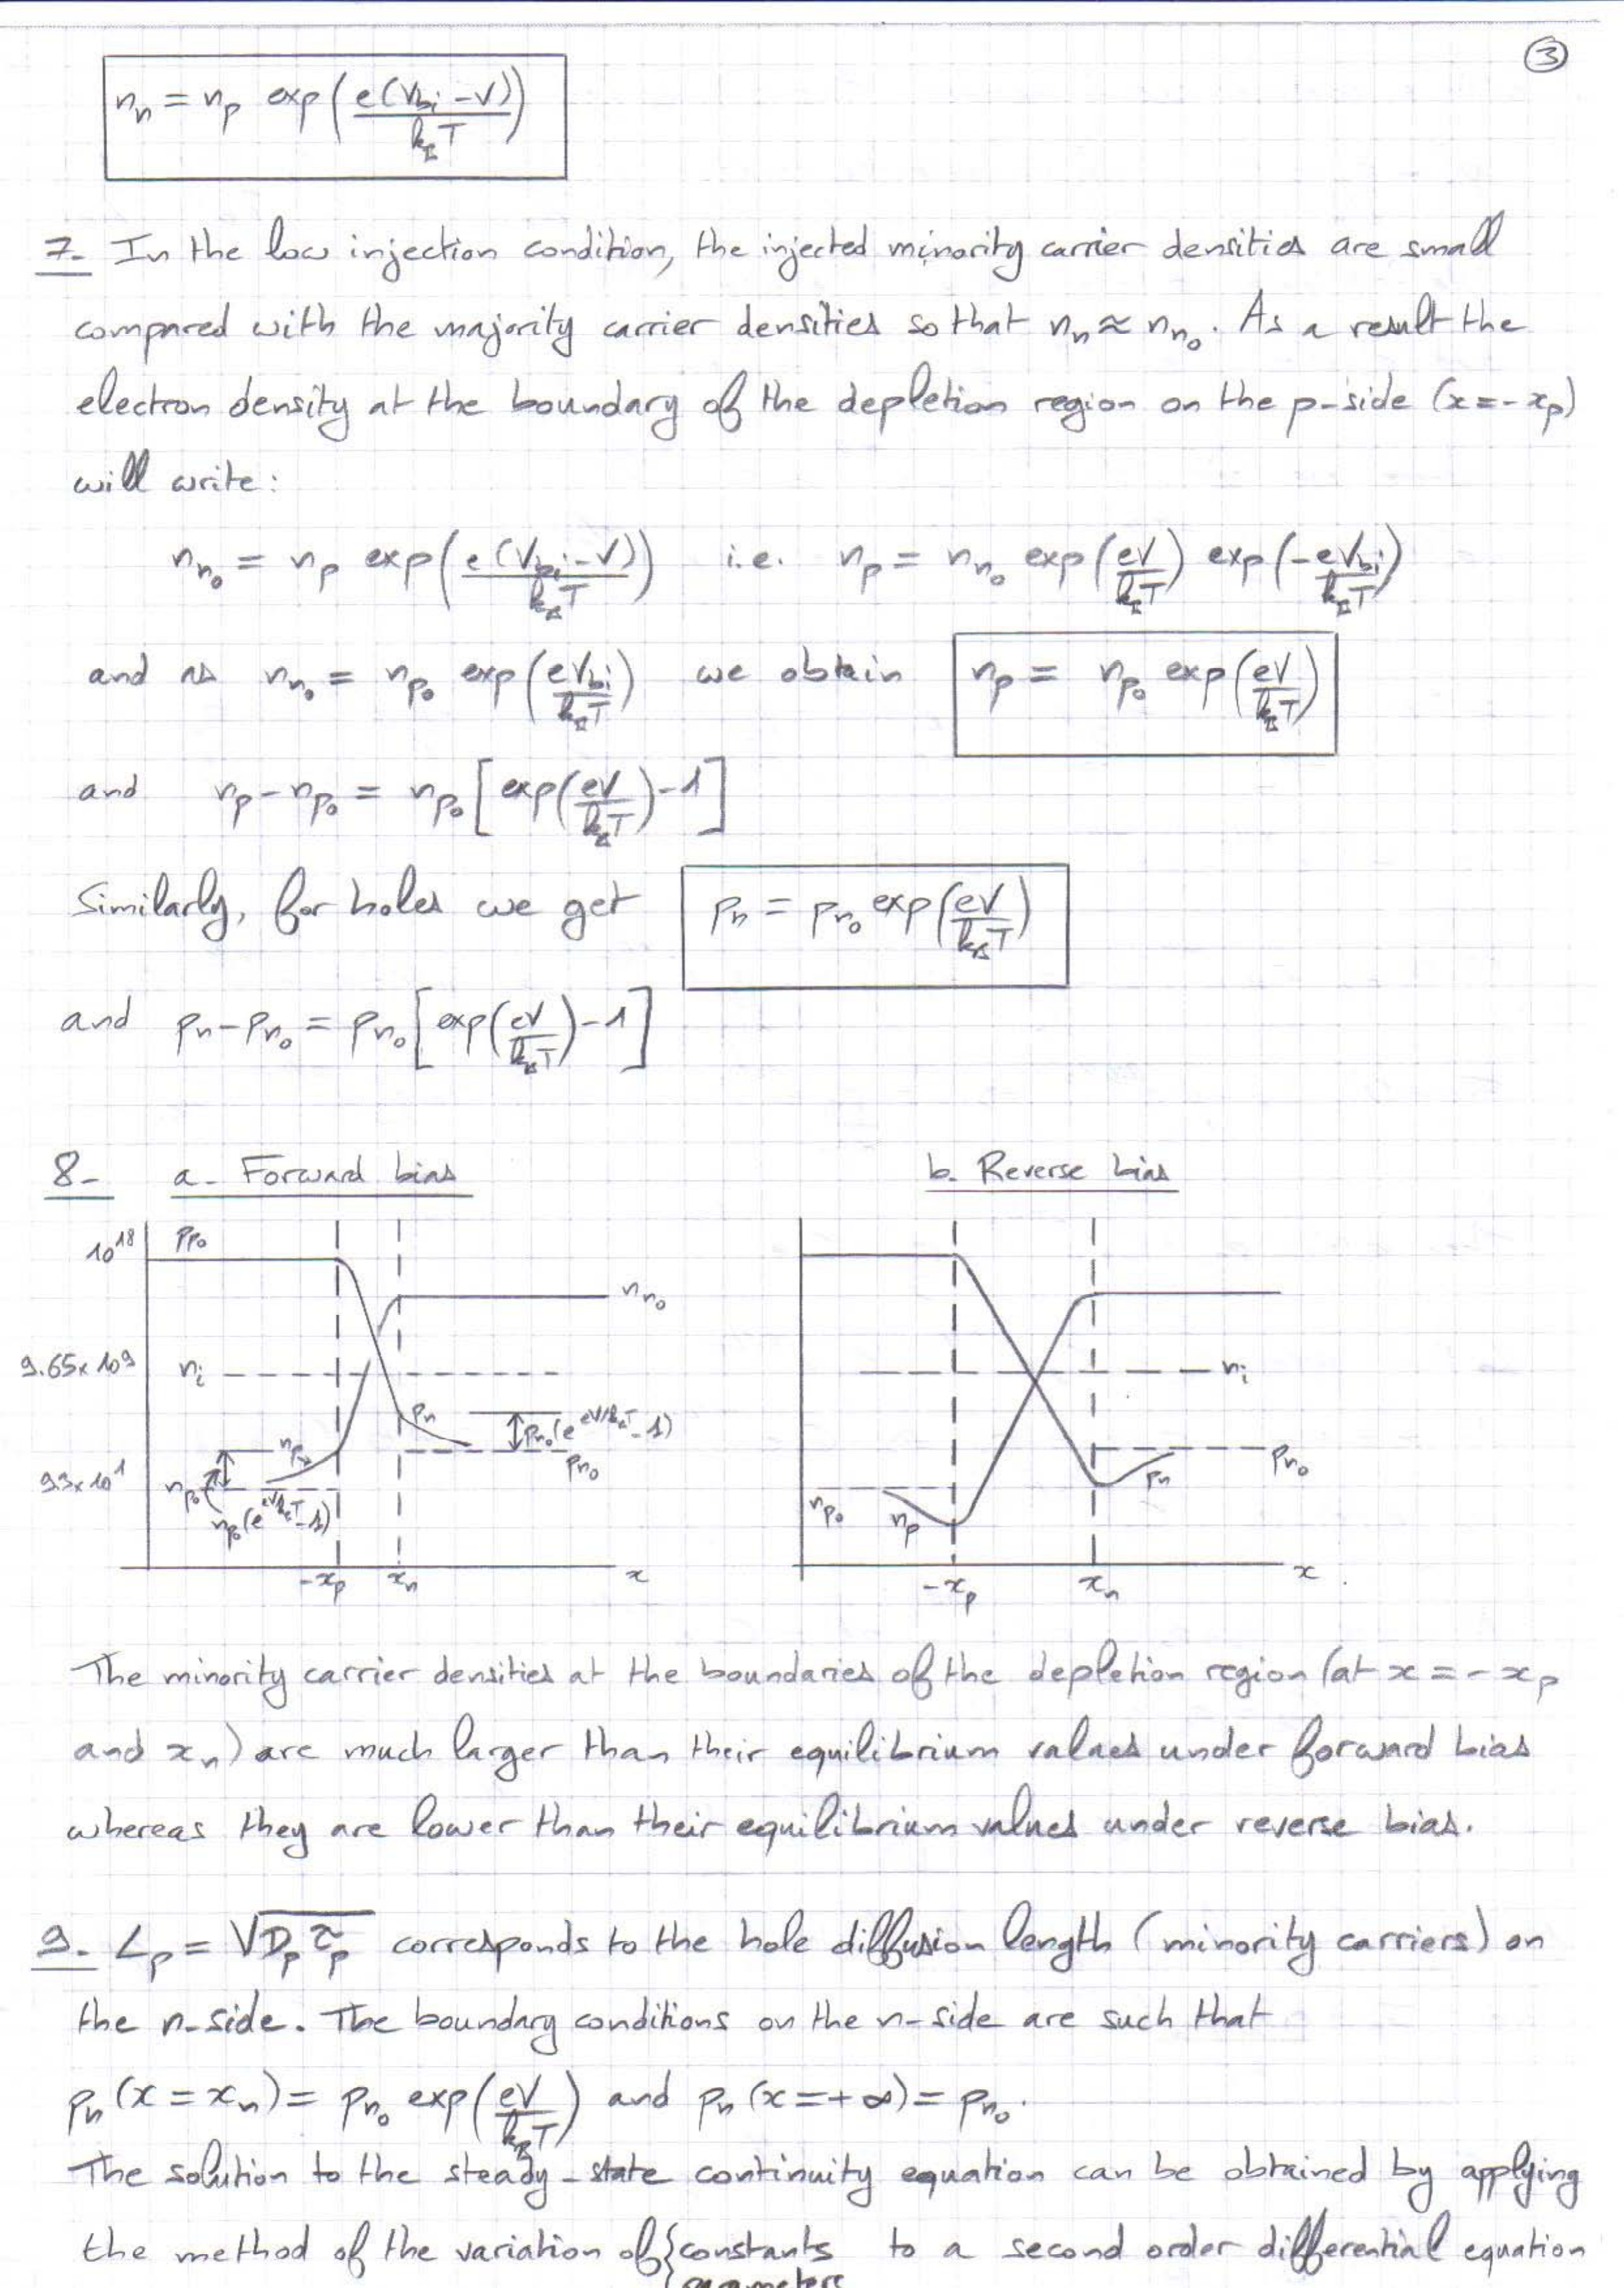 ③
n_n = n_p exp(e(V_bi - V)/k_BT)
7- In the low injection condition, the injected minority carrier densities are small
compared with the majority carrier densities so that n_n ≈ n_n₀. As a result the
electron density at the boundary of the depletion region on the p-side (x = -x_p)
will write:
n_n₀ = n_p exp(e(V_bi - V)/k_BT) i.e. n_p = n_n₀ exp(eV/k_BT) exp(-eV_bi/k_BT)
and as n_n₀ = n_p₀ exp(eV_bi/k_BT) we obtain n_p = n_p₀ exp(eV/k_BT)
and n_p - n_p₀ = n_p₀ [exp(eV/k_BT) - 1]
Similarly, for holes we get p_n = p_n₀ exp(eV/k_BT)
and p_n - p_n₀ = p_n₀ [exp(eV/k_BT) - 1]
8- a- Forward bias b. Reverse bias
10¹⁸ p_p₀
n_n₀
9.65x10⁹ n_i
n_i
p_n p_n₀(e^(eV/k_BT) - 1)
n_p
p_n₀
p_n₀
p_n
9.3x10¹ n_p₀
n_p₀(e^(eV/k_BT) - 1)
n_p₀ n_p
-x_p x_n x
-x_p x_n x
The minority carrier densities at the boundaries of the depletion region (at x = -x_p
and x_n) are much larger than their equilibrium values under forward bias
whereas they are lower than their equilibrium values under reverse bias.
9- L_p = √(D_p τ_p) corresponds to the hole diffusion length (minority carriers) on
the n-side. The boundary conditions on the n-side are such that
p_n (x = x_n) = p_n₀ exp(eV/k_BT) and p_n (x = +∞) = p_n₀.
The solution to the steady-state continuity equation can be obtained by applying
the method of the variation of { constants to a second order differential equation
parameters